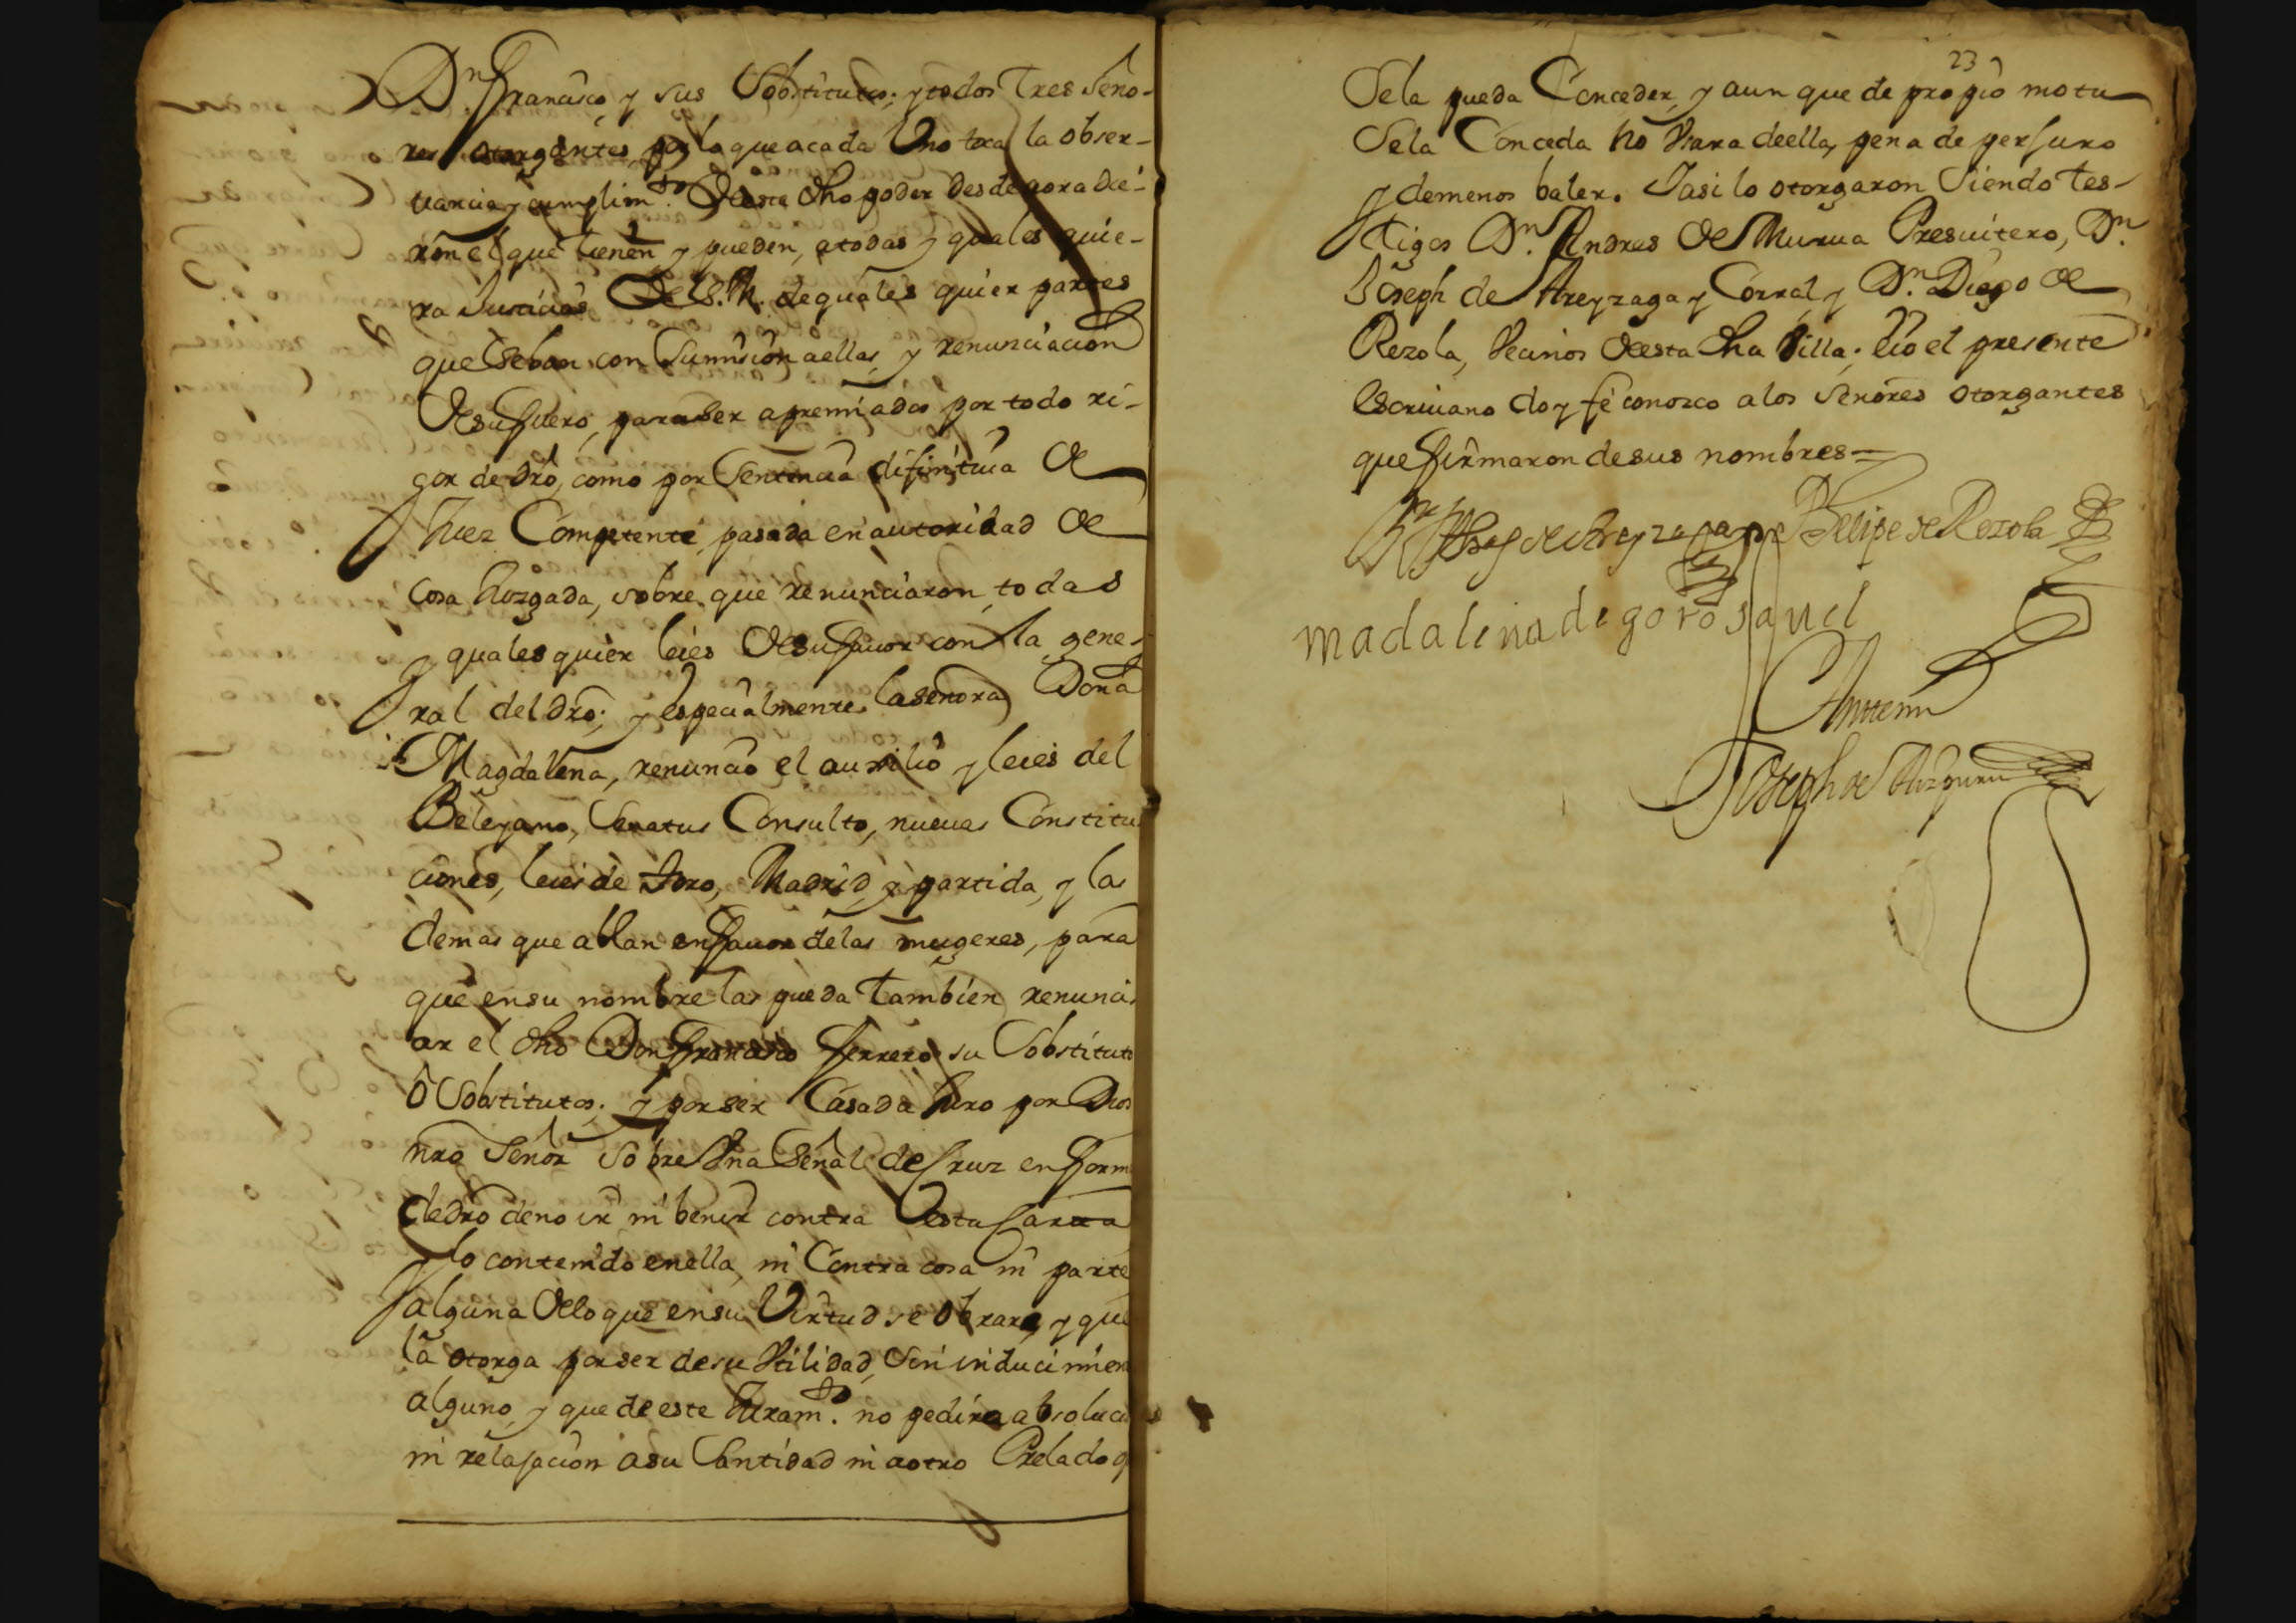 Dn. Francisco y sus Sobstitutos; y todos tres seño-
res otorgantes, por lo que acada Uno toca la obser-
uancia y cumplimto. Deeste dho poder desde aora die-
ron el que tienen y pueden, atodas y quales quie-
ra Justicias De S. M. de quales quier partes
que Sean con Sumision aellas, y renunciacion
Desu fuero, para ser apremiados por todo ri-
gor de dro, como por Sentencia difinitiua De
Juez Competente pasada en autoridad De
Cosa Juzgada, sobre que renunciaron todas
y quales quier leies Desu fauor con la gene-
ral del dro; y especialmente la señora Doña
Magdalena, renuncio el auxilio y leies del
Beleyano, Senatus Consulto, nueuas Constitu
ciones, leies de Toro, Madrid, y partida, y las
demas que ablan en fauor delas mugeres, para
que ensu nombre las pueda tambien renunci
ar el dho Don Francisco Ferrero su Sobstituto
ô Sobstitutos; y por ser Casada Juro por Dios
nro Señor sobre Vna Señal de Cruz en form
de dro de no ir ni benir contra Desta Carta
y lo contenido enella, ni Contra cosa ni parte
alguna Delo que ensu Virtud se obrare, y que
la otorga por ser desu Vtilidad, Sin inducimien
alguno, y que de este Juramto. no pedira absoluci
ni relajacion asu Santidad ni aotro Prelado q
23
Sela pueda Conceder, y aun que de propio motu
Sela Conceda no Vsara deella, pena de perjuro
y demenos baler. Iasi lo otorgaron Siendo tes-
tigos Dn. Andres De Murua Presuitero, Dn.
Joseph de Areyzaga y Corral, y Dn. Diego de
Rezola, Vecinos Deesta dha Villa; Eio el presente
Escriuano doy fe conozco alos Señores otorgantes
que firmaron desus nombres=
Joseph de Areyzaga Felipe de Rezola
madalena de gorosauel
Antemi
Joseph de Aizpuru